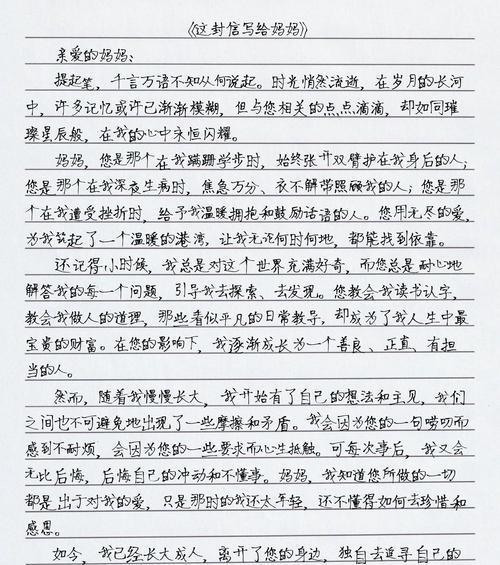 《这封信写给妈妈》
亲爱的妈妈：
提起笔，千言万语不知从何说起。时光悄然流逝，在岁月的长河
中，许多记忆或许已渐渐模糊，但与您相关的点点滴滴，却如同璀
璨星辰般，在我的心中永恒闪耀。
妈妈，您是那个在我蹒跚学步时，始终张开双臂护在我身后的人；
您是那个在我深夜生病时，焦急万分、衣不解带照顾我的人；您是那
个在我遭受挫折时，给予我温暖拥抱和鼓励话语的人。您用无尽的爱，
为我筑起了一个温暖的港湾，让我无论何时何地，都能找到依靠。
还记得小时候，我总是对这个世界充满好奇，而您总是耐心地
解答我的每一个问题，引导我去探索、去发现。您教会我读书认字，
教会我做人的道理，那些看似平凡的日常教导，却成为了我人生中最
宝贵的财富。在您的影响下，我逐渐成长为一个善良、正直、有担
当的人。
然而，随着我慢慢长大，我开始有了自己的想法和主见，我们
之间也不可避免地出现了一些摩擦和矛盾。我会因为您的一句唠叨而
感到不耐烦，会因为您的一些要求而心生抵触。可每次事后，我又会
无比后悔，后悔自己的冲动和不懂事。妈妈，我知道您所做的一切
都是出于对我的爱，只是那时的我还太年轻，还不懂得如何去珍惜和
感恩。
如今，我已经长大成人，离开了您的身边，独自去追寻自己的